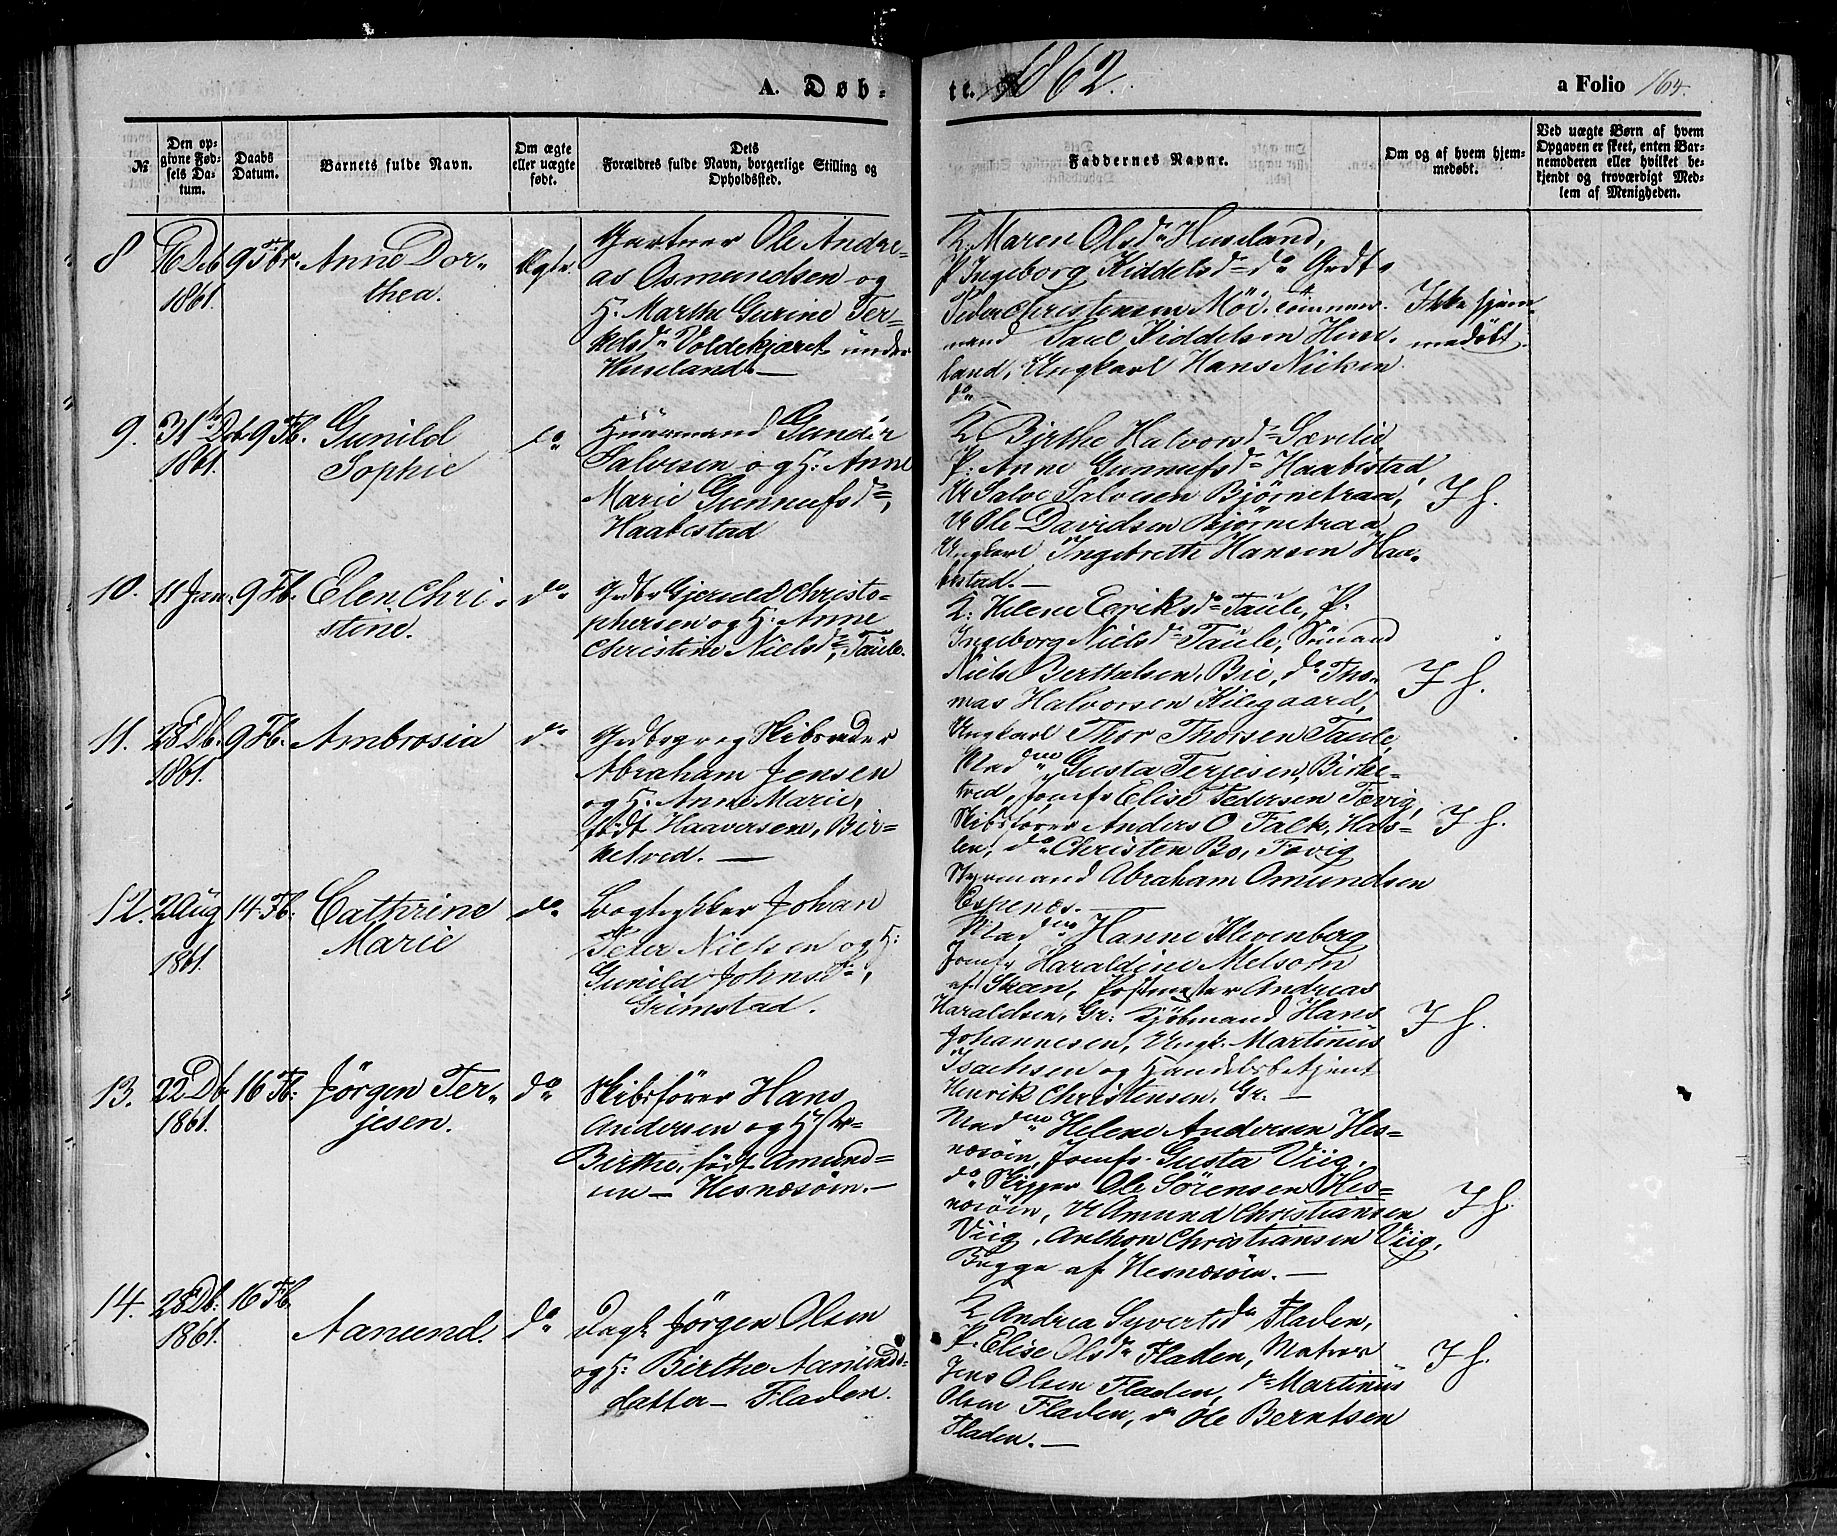 A. Døb-
te. 1862.
a Folio 164.
№
Den opgivne Fødsels Datum.
Daabs Datum.
Barnets fulde Navn.
Om ægte eller uægte født.
Dets Forældres fulde Navn, borgerlige Stilling og Opholdssted.
Faddernes Navne.
Om og af hvem hjemmedøbt.
Ved uægte Børn af hvem Opgaven er skeet, enten Barnemoderen eller hvilket bekjendt og troværdigt Medlem af Menigheden.
8 16 Deb 9 Fbr. Anne Dor-
1861. thea.
Ægte.
Gartner Ole Andre-
as Osmundsen og
H. Marthe Gurine Ter-
kelsd. Voldekjæret under
Huseland.
K. Maren Olsd. Huseland,
P. Ingeborg Kiddelsd. do Grdt.
Peder Christensen Møi, Tömmer-
mand Paul Kiddelsen Huse-
land, Ungkarl Hans Nielsen
do
Ikke hjem-
medøbt.
9. 31te Db. 9 Fb. Gunild
1861. Sophie
do
Huusmand Gunder
Salvesen og H. Anne
Marie Gunnufsd.,
Haabestad
K. Birthe Halvorsd. Sævelie
P. Anne Gunnufsd. Haabestad
U Salve Salvesen Bjørnetraa,
U Ole Davidsen Bjørnetraa
Ungkarl Ingebreth Hansen Haa-
bestad.
I h.
10. 11 Jan. 9 Fb. Elen Chri-
stine.
do
Grdbr Gjeruld Christo-
phersen og H. Anne
Christine Nielsd., Taule.
K. Helene Eeriksd. Taule, P.
Ingeborg Nielsd. Taule, Sömand
Niels Berthelsen Bie, do Tho-
mas Halvorsen Kilegaard,
Ungkarl Thor Thorsen Taule,
I h.
11. 28 Db. 9 Fb. Ambrosia
1861.
do
Grdbrgr og Skibsreder
Abraham Jensen
og H. Anne Marie,
födt Haaversen, Bir-
ketved.
Madme Gusta Terjesen, Birke-
tved, Jomfr Elise Pedersen Fævig,
Skibsfører Anders O. Falk, Has-
len, do Christen Bo, Fævig
Styrmand Abraham Omundsen
Espenæs.
I h.
12. 2 Aug 14 Fb. Cathrine
1861. Marie
do
Bogtrykker Johan
Peter Nielsen og H.
Gunild Johnsd.,
Grimstad.
Madme Hanne Klevenberg
Jomfr Haraldine Melsom
af Skeen, Postmester Andreas
Haraldsen, Gr. Kjøbmand Hans
Johannesen, Ungk. Martinus
Isachsen og Handelsbetjent
Henrik Christensen, Gr.
I h.
13. 22 Db. 16 Fb. Jørgen Ter-
1861. jesen.
do
Skibsfører Hans
Andersen og Hstr
Birthe, født Amund-
sen — Hesnæsöen.
Madme Helene Andersen Hes-
næsöen, Jomfr. Gusta Viig,
do Skipper Ole Sørensen Hes-
næsöen, U Amund Christiansen
Viig, Anthon Christiansen Viig,
Begge af Hesnæsöen.
I h.
14. 28 Db. 16 Fb.
1861. Aanund.
do
Dagl Jörgen Olsen
og H. Birthe Aanunds-
datter — Fladen.
K. Andrea Syvertsd. Fladen,
P. Elise Olsd. Fladen, Matros
Jens Olsen Fladen, do Martinus
Olsen Fladen, do Ole Berntsen
Fladen.
I h.